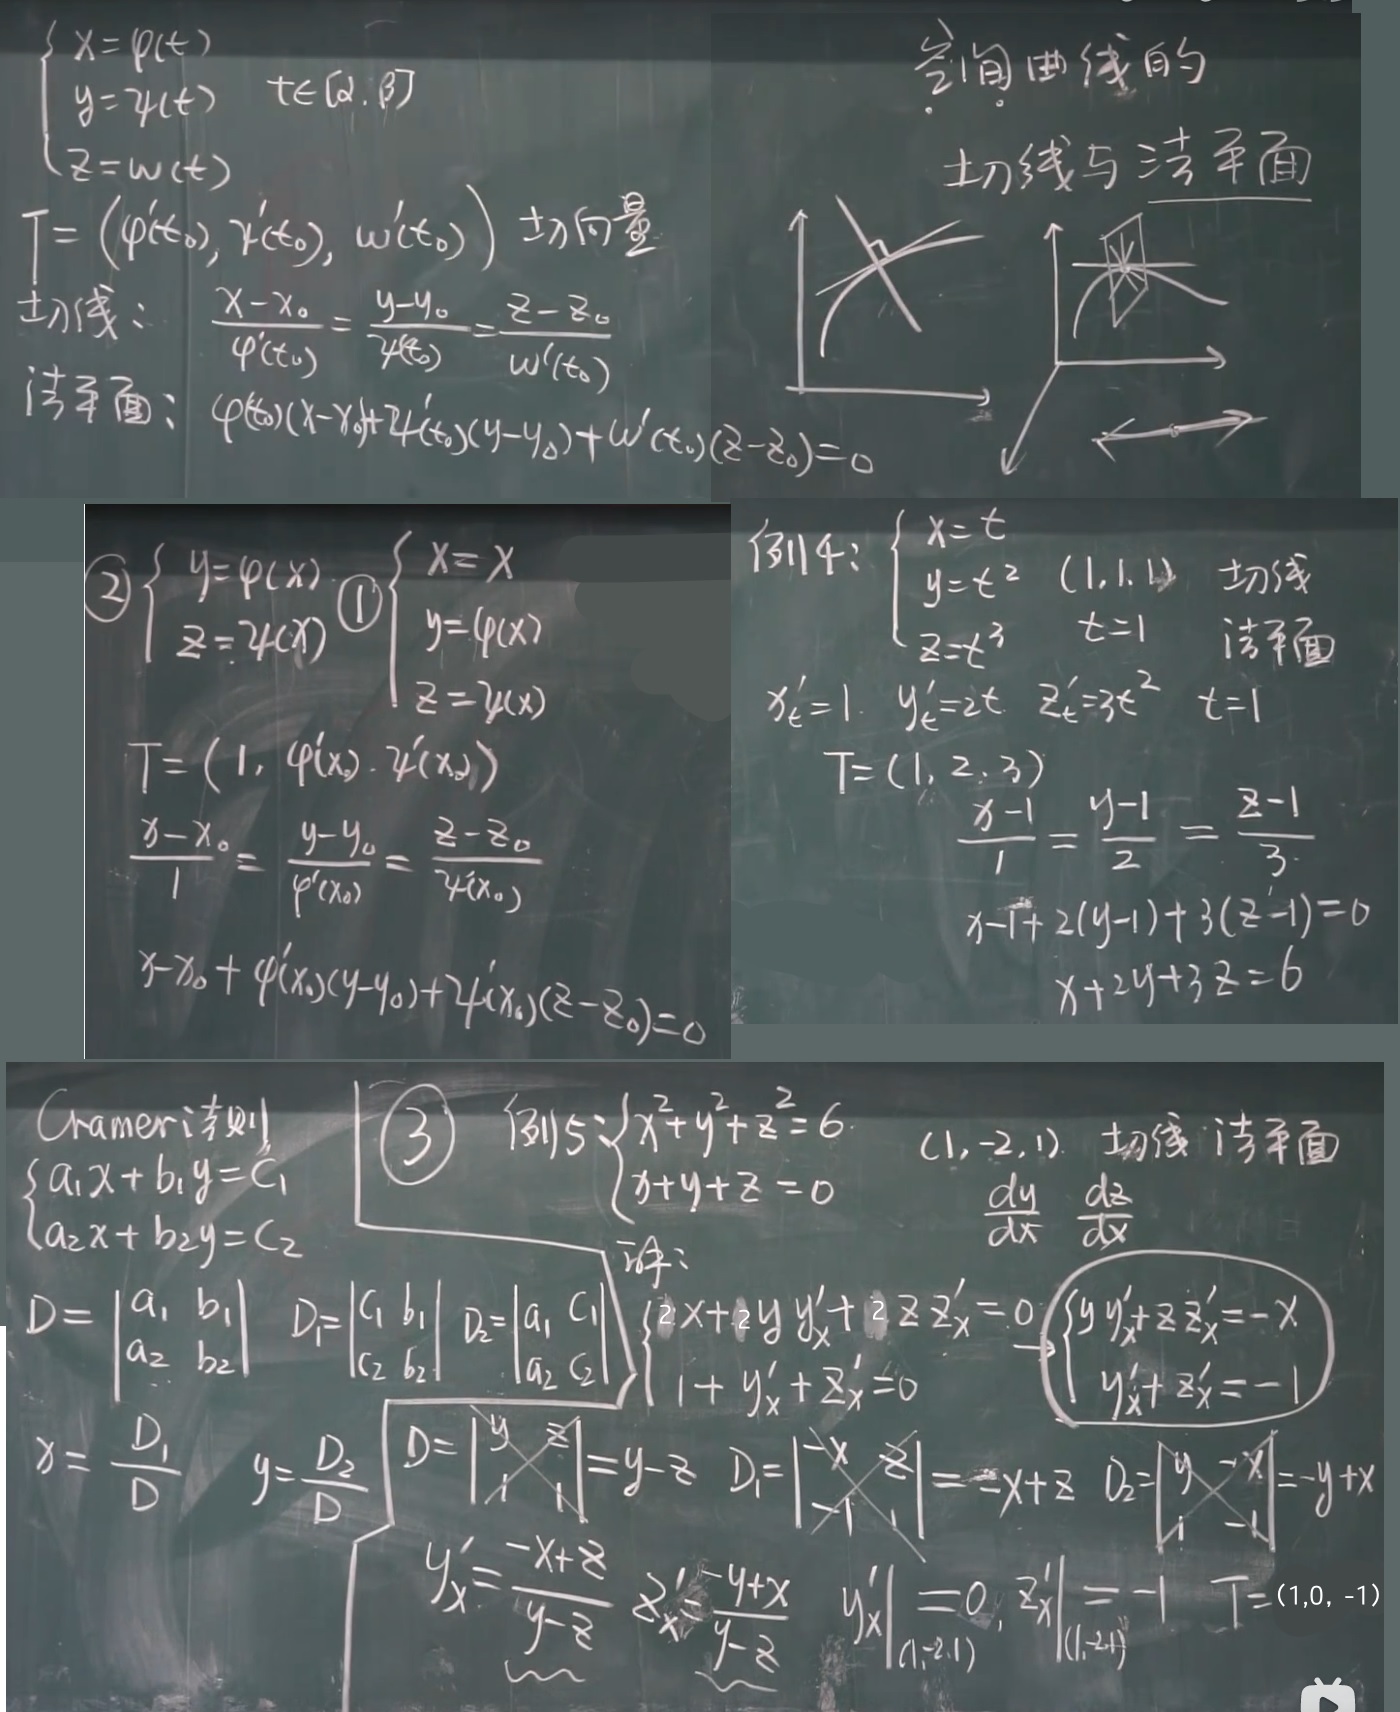 空间曲线的
切线与法平面
{ x=φ(t)
y=ψ(t) t∈[α.β]
z=w(t)
T=(φ'(t₀), ψ'(t₀), w'(t₀)) 切向量
切线: (x-x₀)/φ'(t₀) = (y-y₀)/ψ'(t₀) = (z-z₀)/w'(t₀)
法平面: φ'(t₀)(x-x₀)+ψ'(t₀)(y-y₀)+w'(t₀)(z-z₀)=0
② { y=φ(x)
z=ψ(x)
① { x=x
y=φ(x)
z=ψ(x)
T=(1, φ'(x₀). ψ'(x₀))
(x-x₀)/1 = (y-y₀)/φ'(x₀) = (z-z₀)/ψ'(x₀)
x-x₀+φ'(x₀)(y-y₀)+ψ'(x₀)(z-z₀)=0
例4: { x=t
y=t² (1.1.1) 切线
z=t³ t=1 法平面
x't=1. y't=2t z't=3t² t=1
T=(1, 2, 3)
(x-1)/1 = (y-1)/2 = (z-1)/3
x-1+2(y-1)+3(z-1)=0
x+2y+3z=6
Cramer法则
{ a₁x+b₁y=C₁
a₂x+b₂y=C₂
D=|a₁ b₁; a₂ b₂| D₁=|C₁ b₁; C₂ b₂| D₂=|a₁ C₁; a₂ C₂|
x=D₁/D y=D₂/D
③ 例5: { x²+y²+z²=6
x+y+z=0
(1,-2,1). 切线 法平面
dy/dx dz/dx
解:
{ 2x+2yy'x+2zz'x=0 → { yy'x+zz'x=-x
1+y'x+z'x=0 y'x+z'x=-1
D=|y z; 1 1|=y-z D₁=|-x z; -1 1|=-x+z D₂=|y -x; 1 -1|=-y+x
y'x=(-x+z)/(y-z) z'x=(-y+x)/(y-z) y'x|(1,-2,1)=0, z'x|(1,-2,1)=-1 T=(1,0, -1)